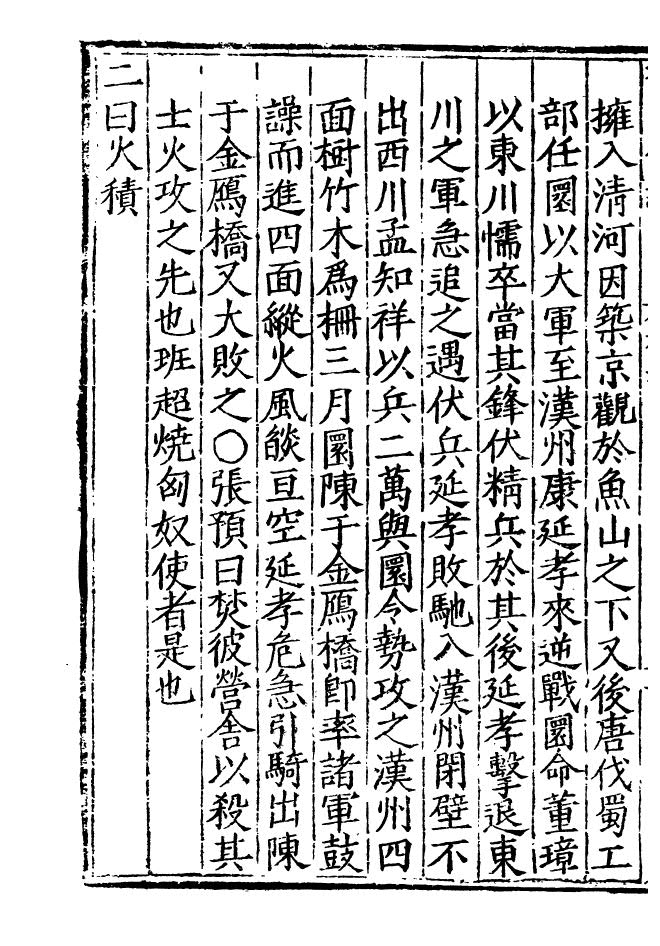 擁入清河因築京觀於魚山之下又後唐伐蜀工
部任圜以大軍至漢州康延孝來逆戰圜命董璋
以東川懦卒當其鋒伏精兵於其後延孝擊退東
川之軍急追之遇伏兵延孝敗馳入漢州閉壁不
出西川孟知祥以兵二萬與圜令勢攻之漢州四
面樹竹木爲柵三月圜陳于金鴈橋卽率諸軍鼓
譟而進四面縱火風燄亘空延孝危急引騎出陳
于金鴈橋又大敗之〇張預曰焚彼營舍以殺其
士火攻之先也班超燒匈奴使者是也
二曰火積